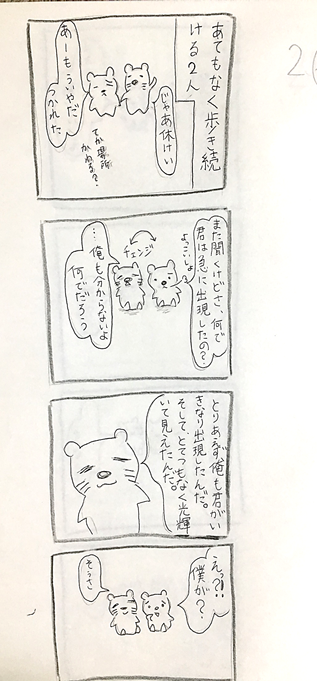 2
あてもなく歩き続
ける2人
じゃあ休けい
あーもういやだ
つかれた
てか場所
かわる?
また聞くけどさ、何で
君は急に出現したの?
よっこいしょ
チェンジ
…俺も分からないよ
何でだろう
とりあえず、俺も君がい
きなり出現したんだ。
そして、とてつもなく光輝
いて見えたんだ。
え?!
僕が?
そうさ